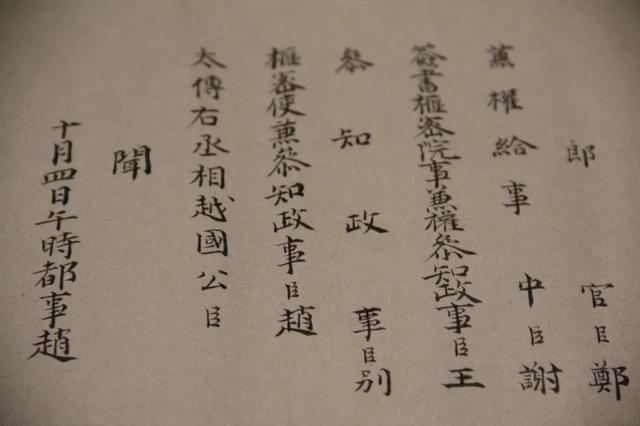 郎官臣鄭
兼權給事中臣謝
簽書樞密院事兼權叅知政事臣王
叅知政事臣别
樞密使兼叅知政事臣趙
太傅右丞相越國公臣
聞
十月四日午時都事趙